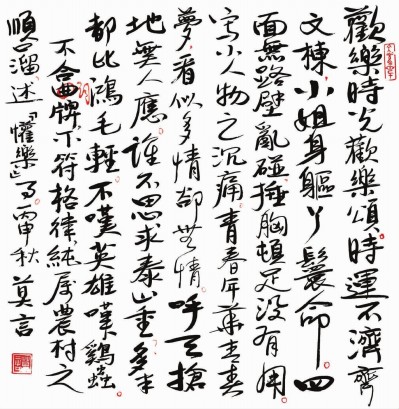 歡樂時光歡樂頌時運不濟齊
文棟小姐身軀丫鬟命四
面無路壁亂碰捶胸頓足沒有用
寫小人物之沉痛青春年華春
夢看似多情卻無情呼天搶
地無人應誰不思求泰山重多半
都比鴻毛輕不嘆英雄嘆雞蟲
不合曲牌不符格律純屬農村之
順口溜述「懽樂」丙申秋 莫言